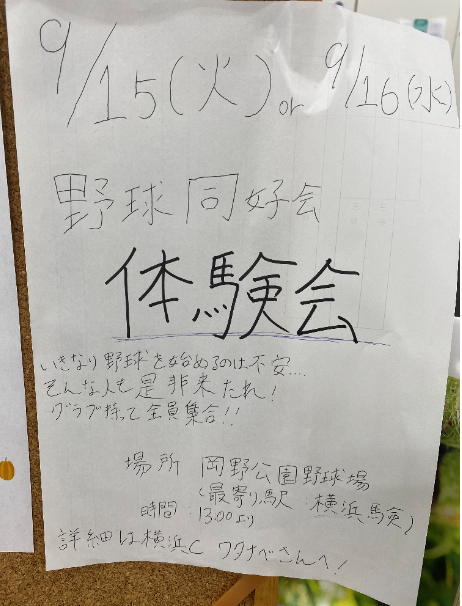 9/15(火) or 9/16(水)
野球同好会
体験会
いきなり野球を始めるのは不安....
そんな人も是非来たれ!
グラブ持って全員集合!!
場所 岡野公園野球場
(最寄り駅 横浜駅)
時間 13:00より
詳細は横浜C ワタナベさんへ!